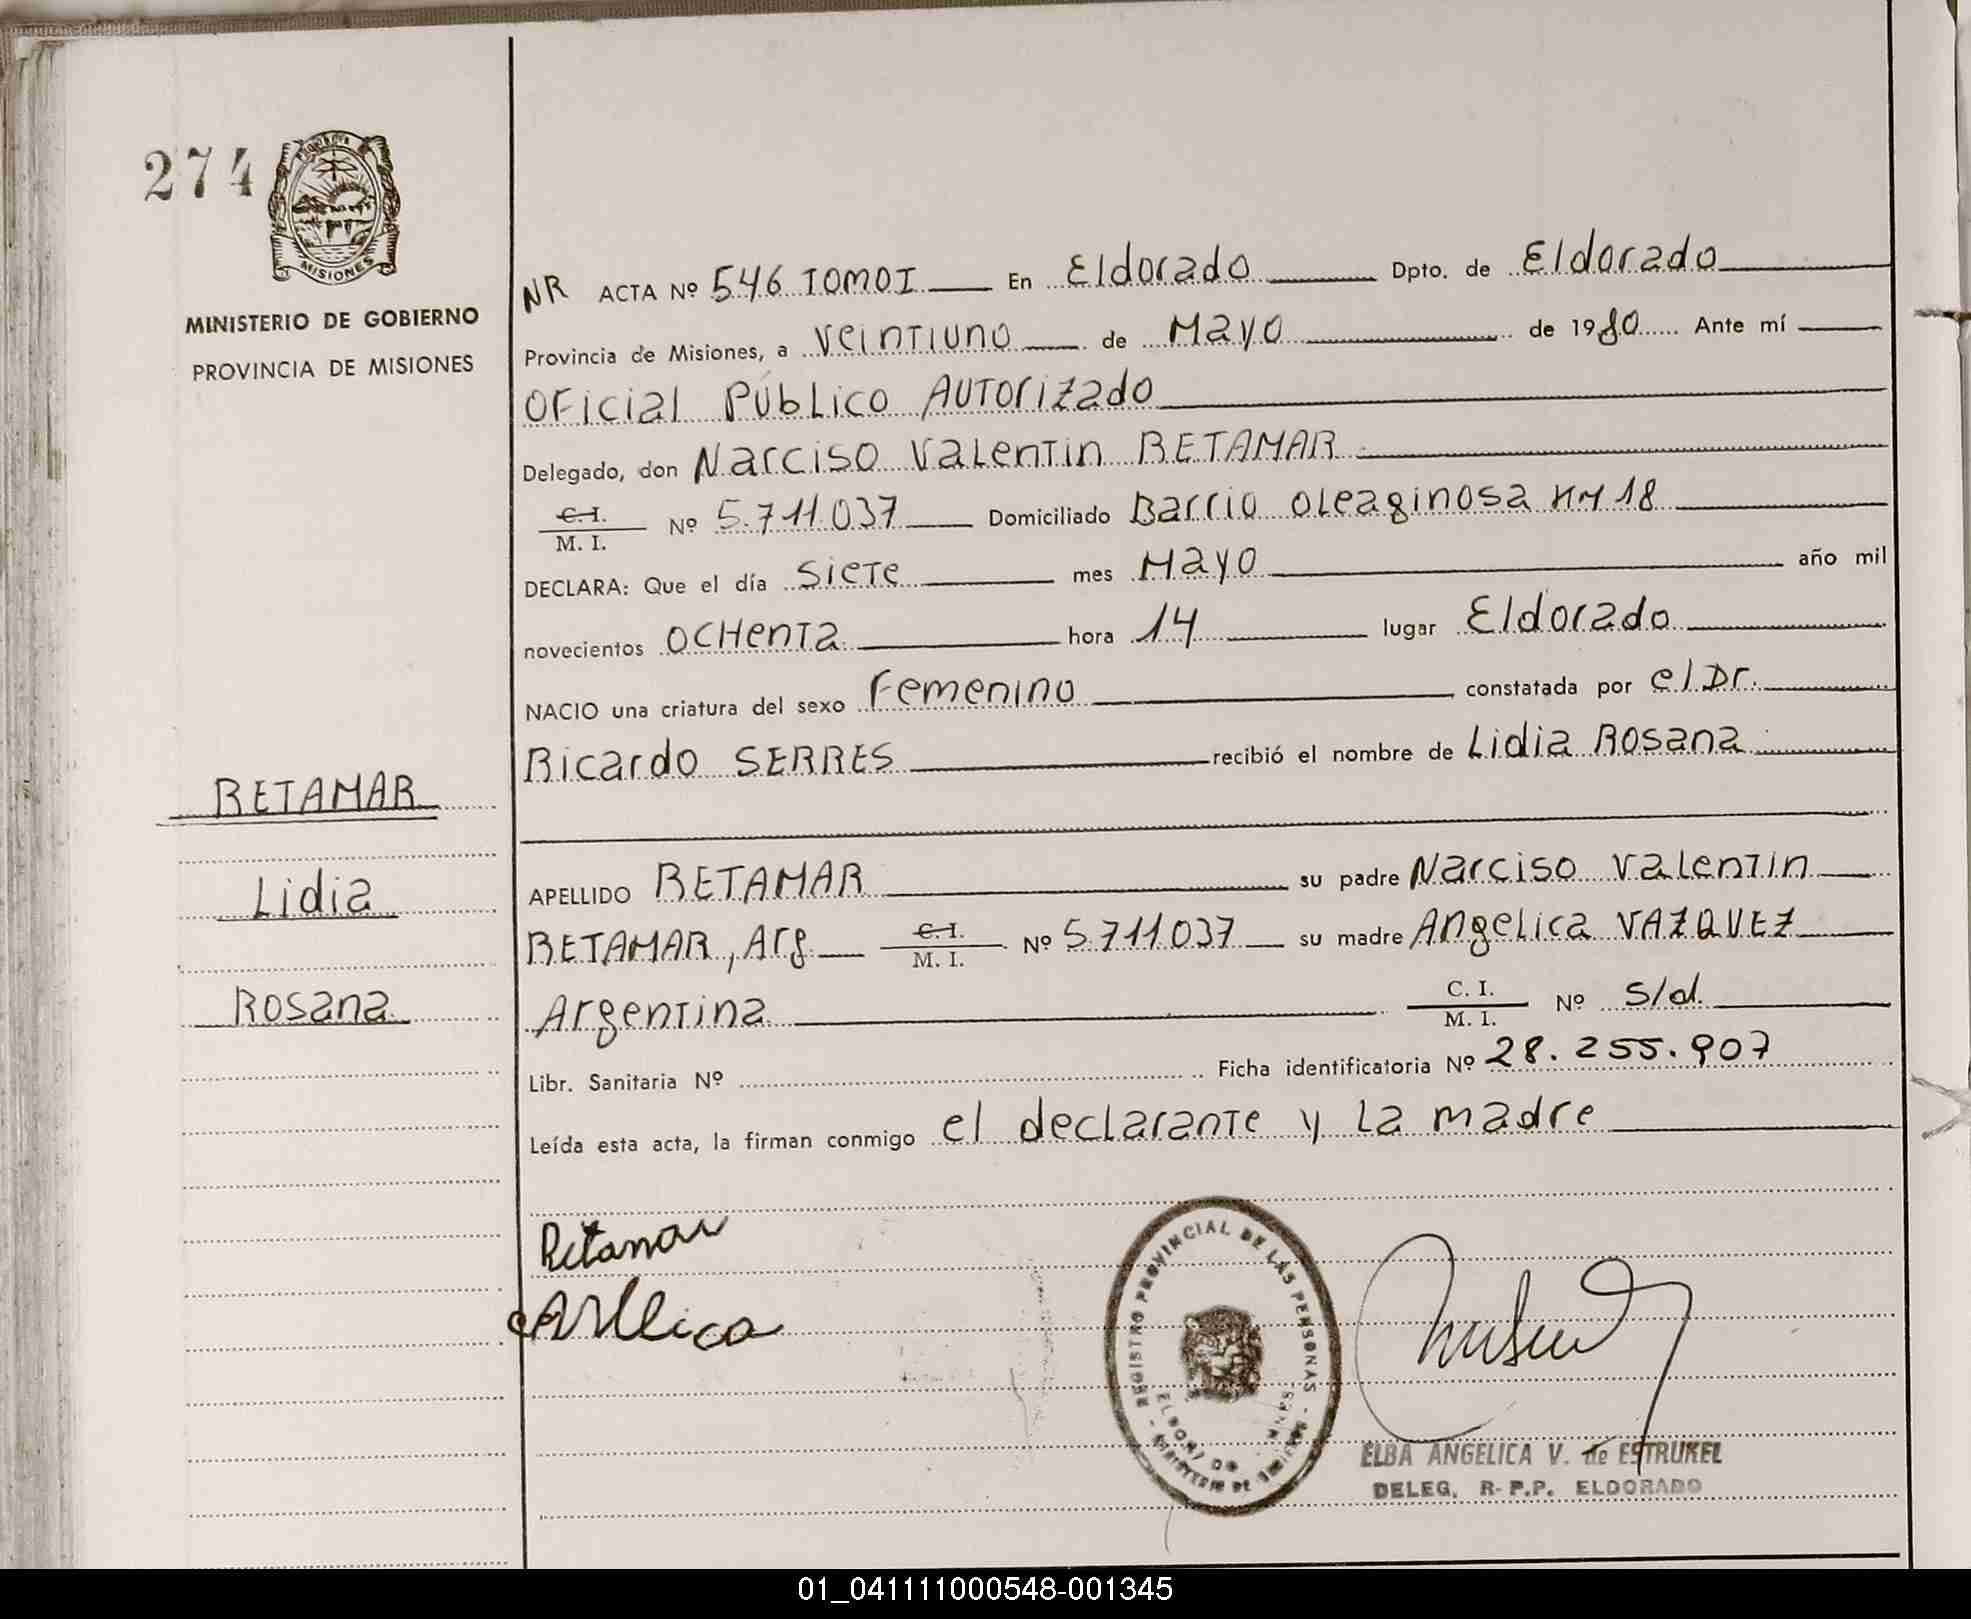 274
MISIONES
MINISTERIO DE GOBIERNO
PROVINCIA DE MISIONES
RETAMAR
Lidia
Rosana
NR ACTA Nº 546 TOMO I En Eldorado Dpto. de Eldorado
Provincia de Misiones, a veintiuno de Mayo de 1980 Ante mí
Oficial Público Autorizado
Delegado, don Narciso Valentin RETAMAR
C.I. / M. I. Nº 5.711.037 Domiciliado Barrio Oleaginosa KM 18
DECLARA: Que el día siete mes Mayo año mil
novecientos ochenta hora 14 lugar Eldorado
NACIO una criatura del sexo Femenino constatada por el Dr.
Ricardo SERRES recibió el nombre de Lidia Rosana
APELLIDO RETAMAR su padre Narciso Valentin
RETAMAR, Arg C.I. / M. I. Nº 5.711.037 su madre Angelica VAZQUEZ
Argentina C. I. / M. I. Nº s/d.
Libr. Sanitaria Nº Ficha identificatoria Nº 28.255.907
Leída esta acta, la firman conmigo el declarante y la madre
Retamar
REGISTRO PROVINCIAL DE LAS PERSONAS
ELDORADO
MINISTERIO DE
ELBA ANGELICA V. de ESTRUKEL
DELEG. R.P.P. ELDORADO
01_041111000548-001345